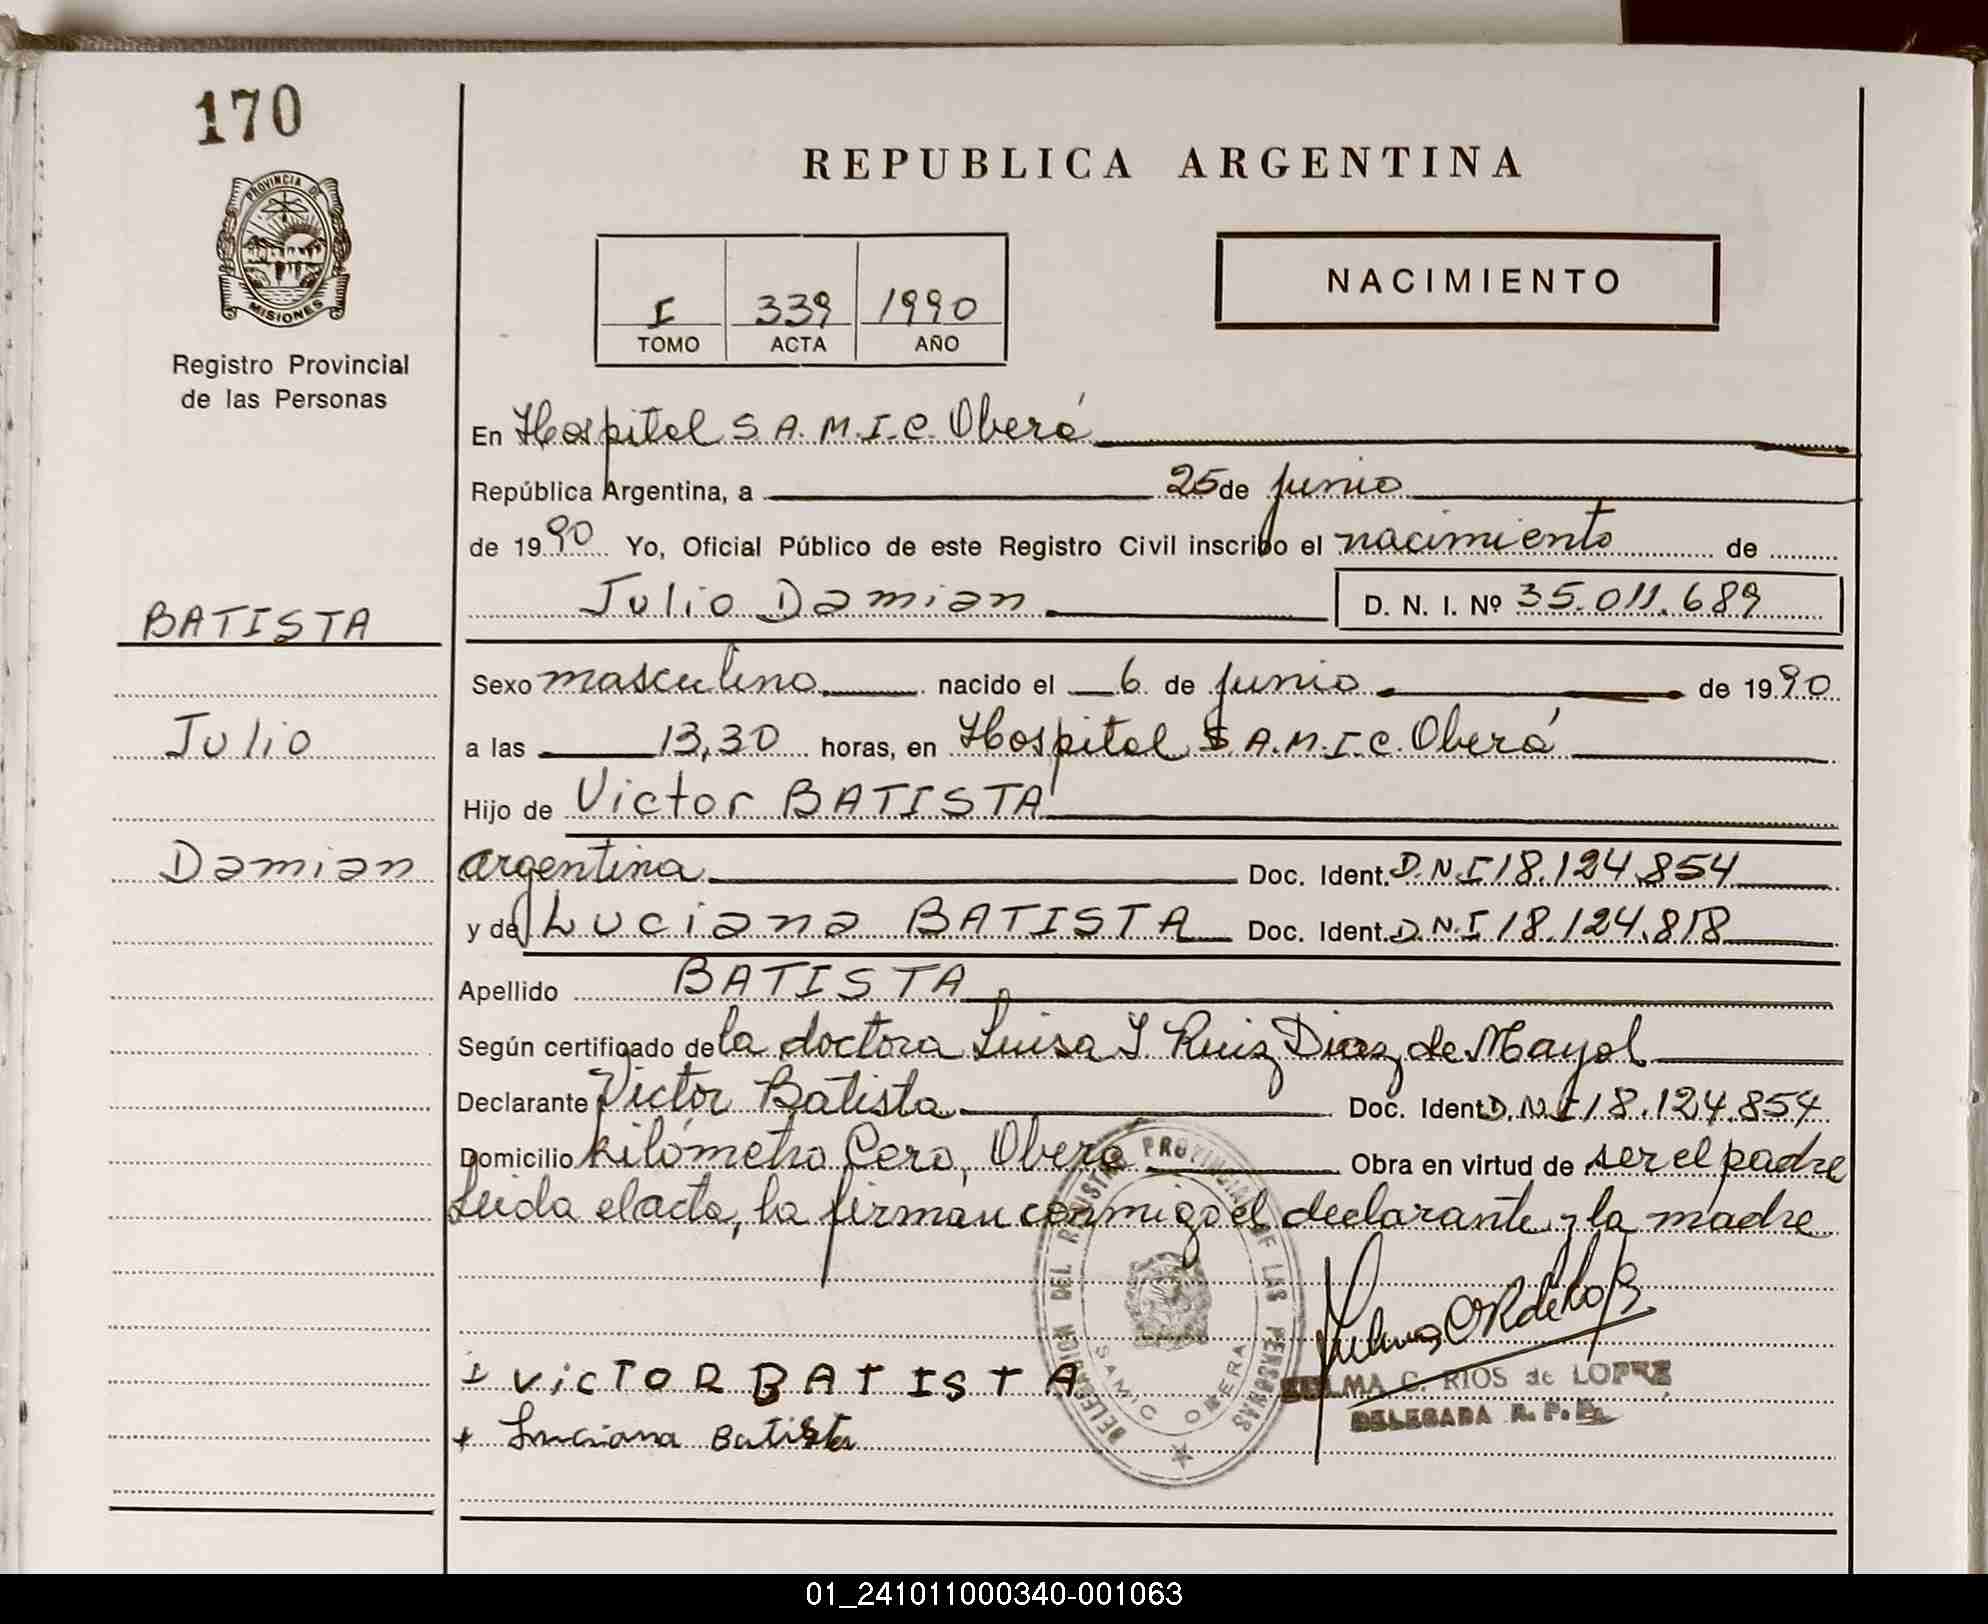 170
REPUBLICA ARGENTINA
PROVINCIA D
MISIONES
Registro Provincial
de las Personas
I 339 1990
TOMO ACTA AÑO
NACIMIENTO
En Hospital S.A.M.I.C. Oberá
República Argentina, a 25 de junio
de 1990 Yo, Oficial Público de este Registro Civil inscribo el nacimiento de
Julio Damian D. N. I. Nº 35.011.689
BATISTA
Julio
Damian
Sexo masculino nacido el 6 de junio de 1990
a las 13,30 horas, en Hospital S.A.M.I.C. Oberá
Hijo de Victor BATISTA
argentina Doc. Ident. D.N.I 18.124.854
y de Luciana BATISTA Doc. Ident. D.N.I 18.124.818
Apellido BATISTA
Según certificado de la doctora Luisa Y Ruiz Diaz de Mayol
Declarante Victor Batista Doc. Ident D.N.I 18.124.854
Domicilio kilómetro Cero, Oberá Obra en virtud de ser el padre
Leida el acta, la firman conmigo el declarante y la madre
VicTOR BATISTA
Luciana Batista
DELEGACION DEL REGISTRO PROVINCIAL DE LAS PERSONAS
SAMIC OBERA
C. RIOS de LOPEZ
DELEGADA R. P. P.
01_241011000340-001063